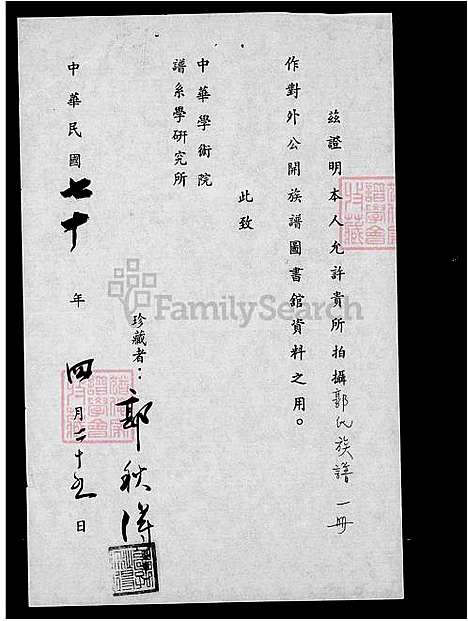 茲證明本人允許貴所拍攝郭氏族譜一冊
作對外公開族譜圖書館資料之用。
此致
中華學術院
譜系學研究所
珍藏者：郭秋
中華民國七十年四月二十五日
FamilySearch